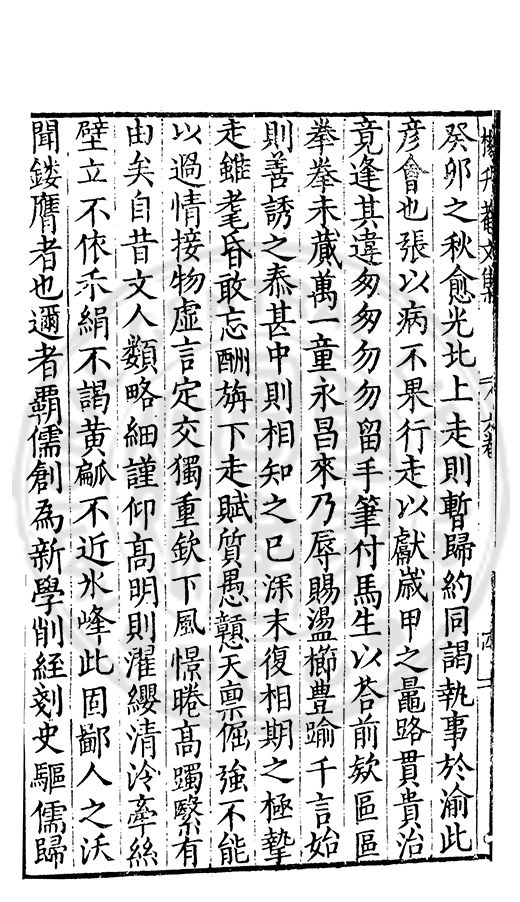 楊升菴文集
癸卯之秋愈光北上走則暫歸約同謁執事於渝此
彥會也張以病不果行走以獻歲甲之鼂路貫貴治
竟逢其違匆匆勿勿留手筆付馬生以荅前欵區區
拳拳未蕆萬一童永昌來乃辱賜盪櫛豐踰千言始
則善誘之泰甚中則相知之已深末復相期之極摯
走雖耄昏敢忘酬旃下走賦質愚戇天稟倔強不能
以過情接物虛言定交獨重欽下風憬睠高躅繄有
由矣自昔文人纇略細謹仰高明則濯纓清泠牽絲
壁立不依絹不謁黃不近氷峰此固鄙人之沃
聞鏤膺者也邇者覇儒創為新學削經剗史驅儒歸